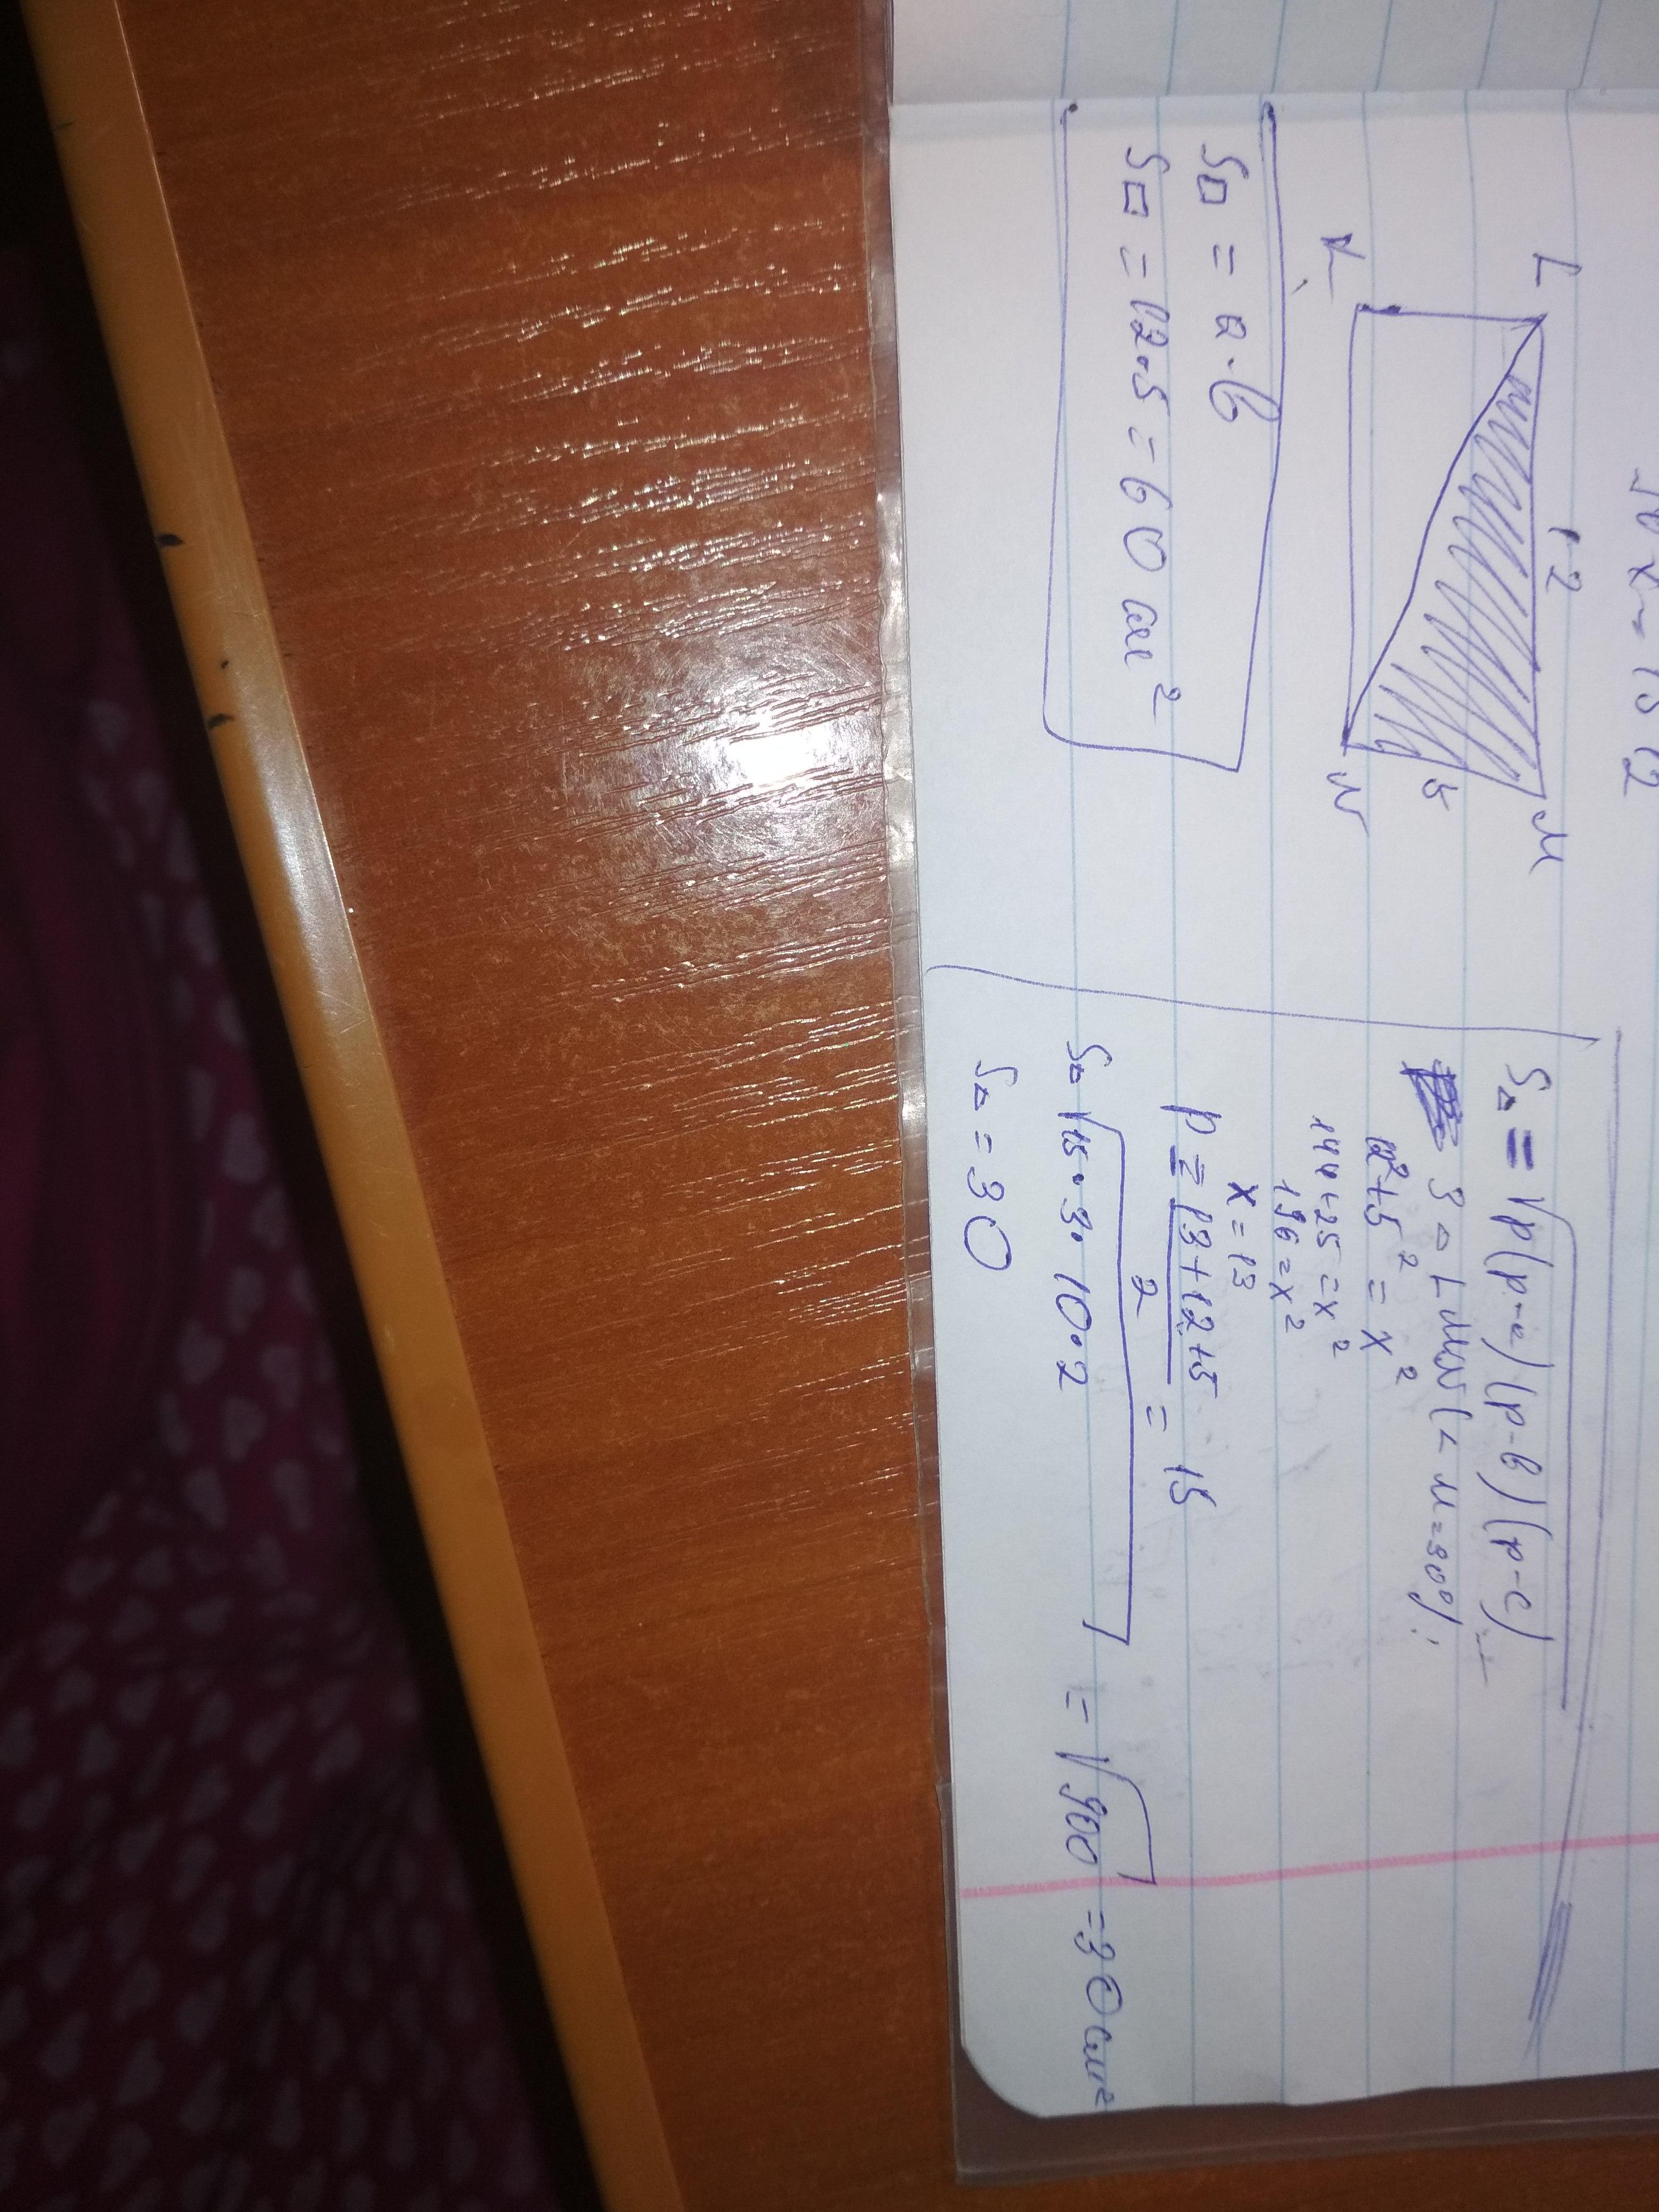 L
12
M
5
K
N
S□ = a·b
S□ = 12·5 = 60 см²
S△ = √p(p-a)(p-b)(p-c)
З △ LMN (∠ M=90°);
12²+5² = x²
144+25 = x²
196 = x²
x = 13
p = 13+12+5 = 15
2
S△ √15·3·10·2 = √900 = 30 см²
S△ = 30